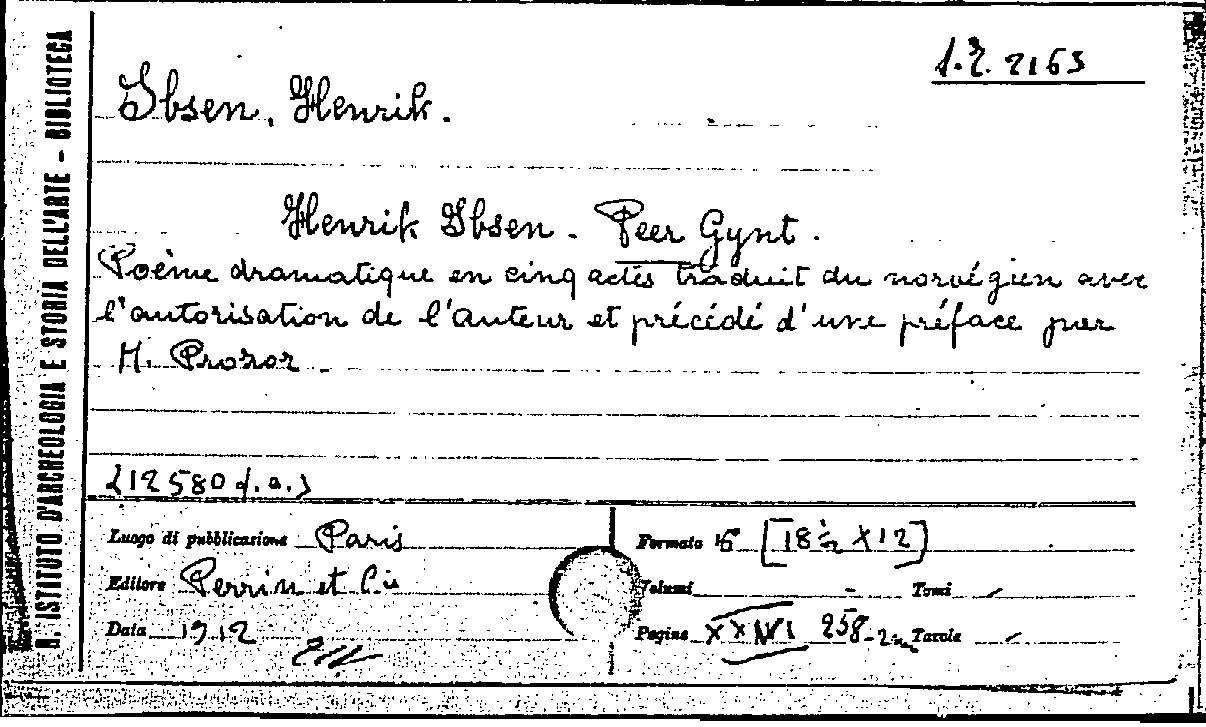 R. ISTITUTO D'ARCHEOLOGIA E STORIA DELL'ARTE - BIBLIOTECA
Ibsen, Henrik.
Henrik Ibsen. Peer Gynt.
Poème dramatique en cinq actes traduit du norvégien avec
l'autorisation de l'auteur et précédé d'une préface par
M. Prozor
(12580 f.a.)
Luogo di pubblicazione Paris
Editore Perrin et Cie
Data 1912
Formato 16° [18½ X 12]
Volumi - Tomi -
Pagine 258 Tavole -